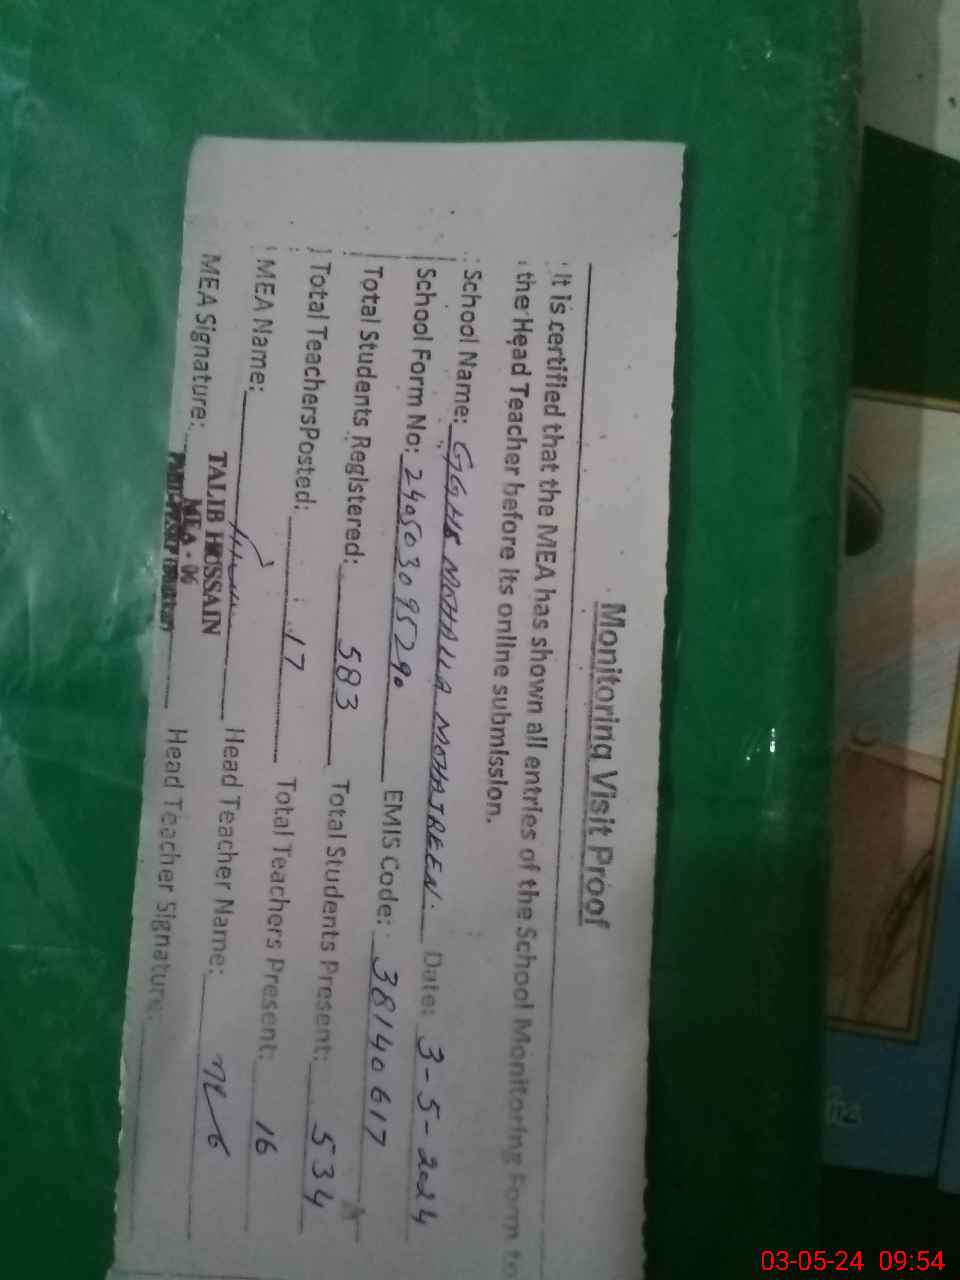 Monitoring Visit Proof
It is certified that the MEA has shown all entries of the School Monitoring Form to
the Head Teacher before its online submission.
School Name: GGHS MOHALLA MOHAJREEN Date: 3-5-2024
School Form No: 24050309529 EMIS Code: 38140617
Total Students Registered: 583 Total Students Present: 534
Total TeachersPosted: 17 Total Teachers Present: 16
MEA Name: Head Teacher Name:
TALIB HOSSAIN
MEA - 06
MEA Signature: Head Teacher Signature:
03-05-24 09:54